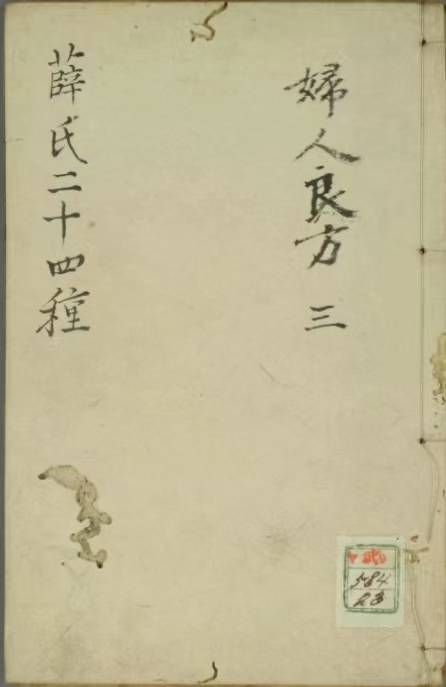 婦人良方 三
薛氏二十四種
584
23